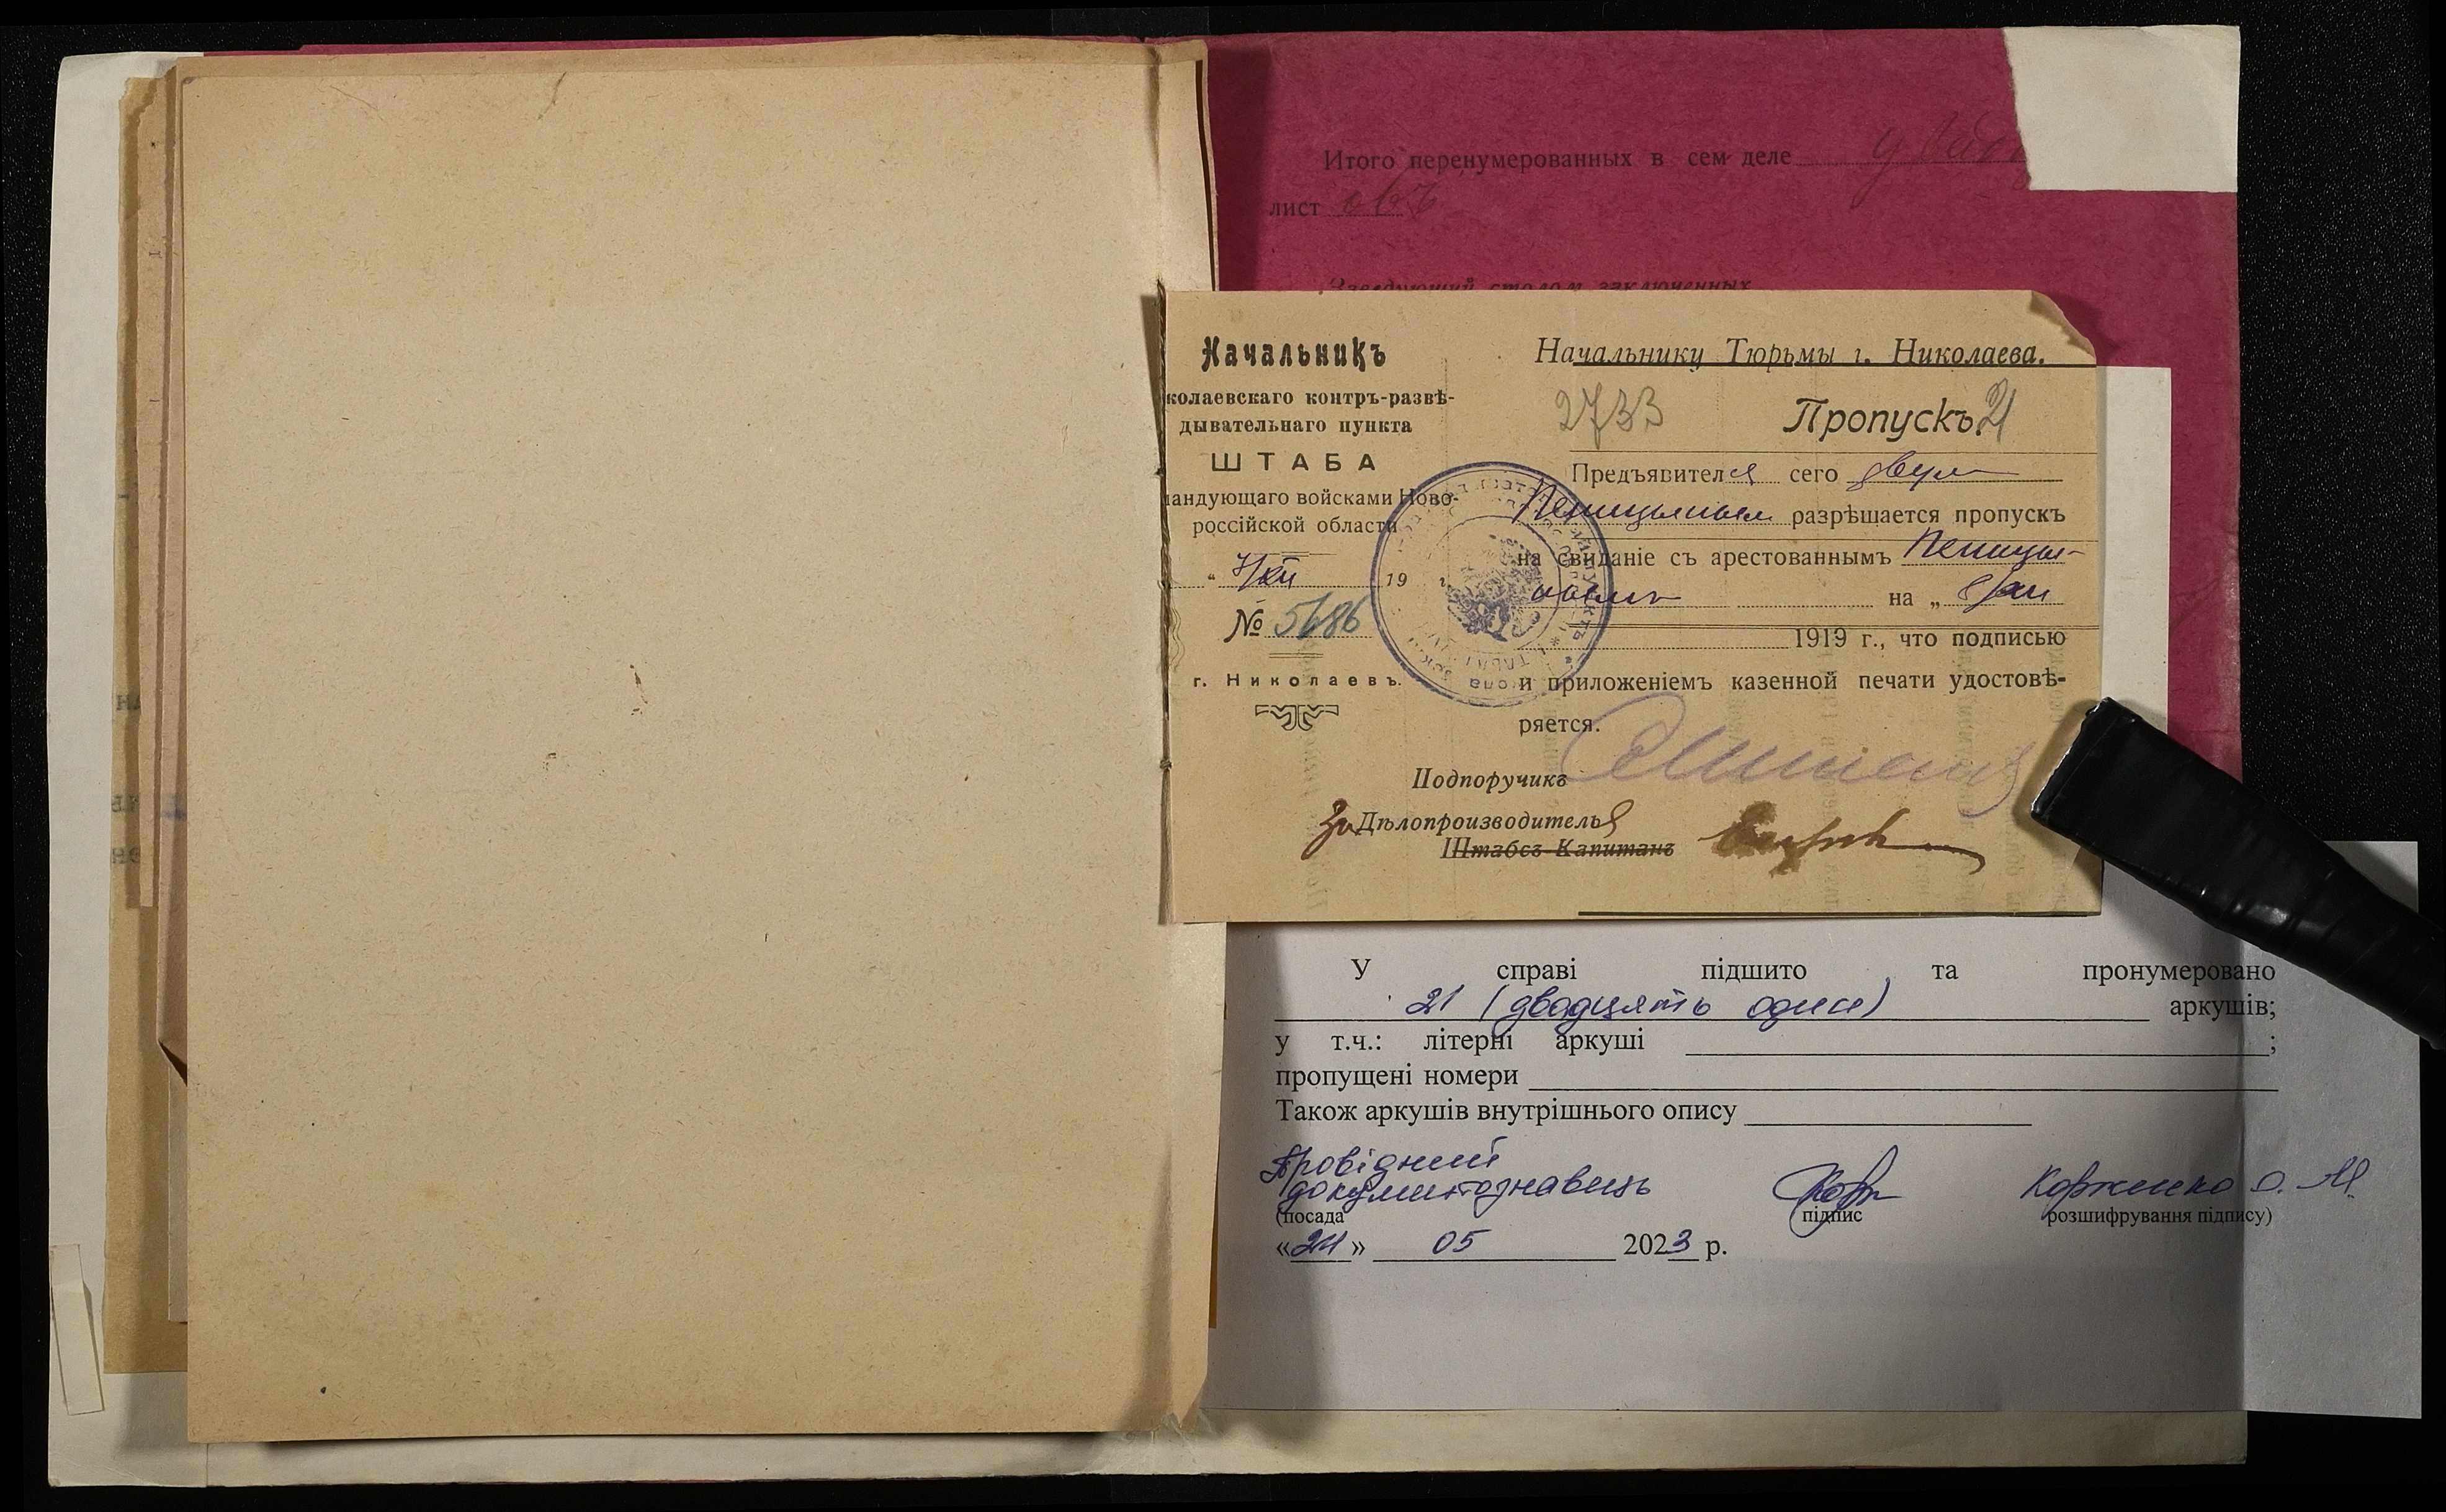 Итого перенумерованных в сем деле
лист овъ
Заведующий столом заключенных
Начальникъ
колаевскаго контръ-развѣ-
дывательнаго пункта
ШТАБА
андующаго войсками Ново-
россійской области
" 7/XII 19 г.
№ 5686
г. Николаевъ.
Начальнику Тюрьмы г. Николаева.
2733 Пропускъ. 21
Предъявителя сего двум
разрѣшается пропускъ
на свиданіе съ арестованнымъ
на „
1919 г., что подписью
и приложеніемъ казенной печати удостовѣ-
ряется.
Подпоручикъ
За Дѣлопроизводителя
Штабсъ-Капитанъ
У справі підшито та пронумеровано
21 (двадцять один) аркушів;
у т.ч.: літерні аркуші ;
пропущені номери
Також аркушів внутрішнього опису
Провідний
документознавець Корженко О. М.
(посада підпис розшифрування підпису)
«24» 05 2023 р.